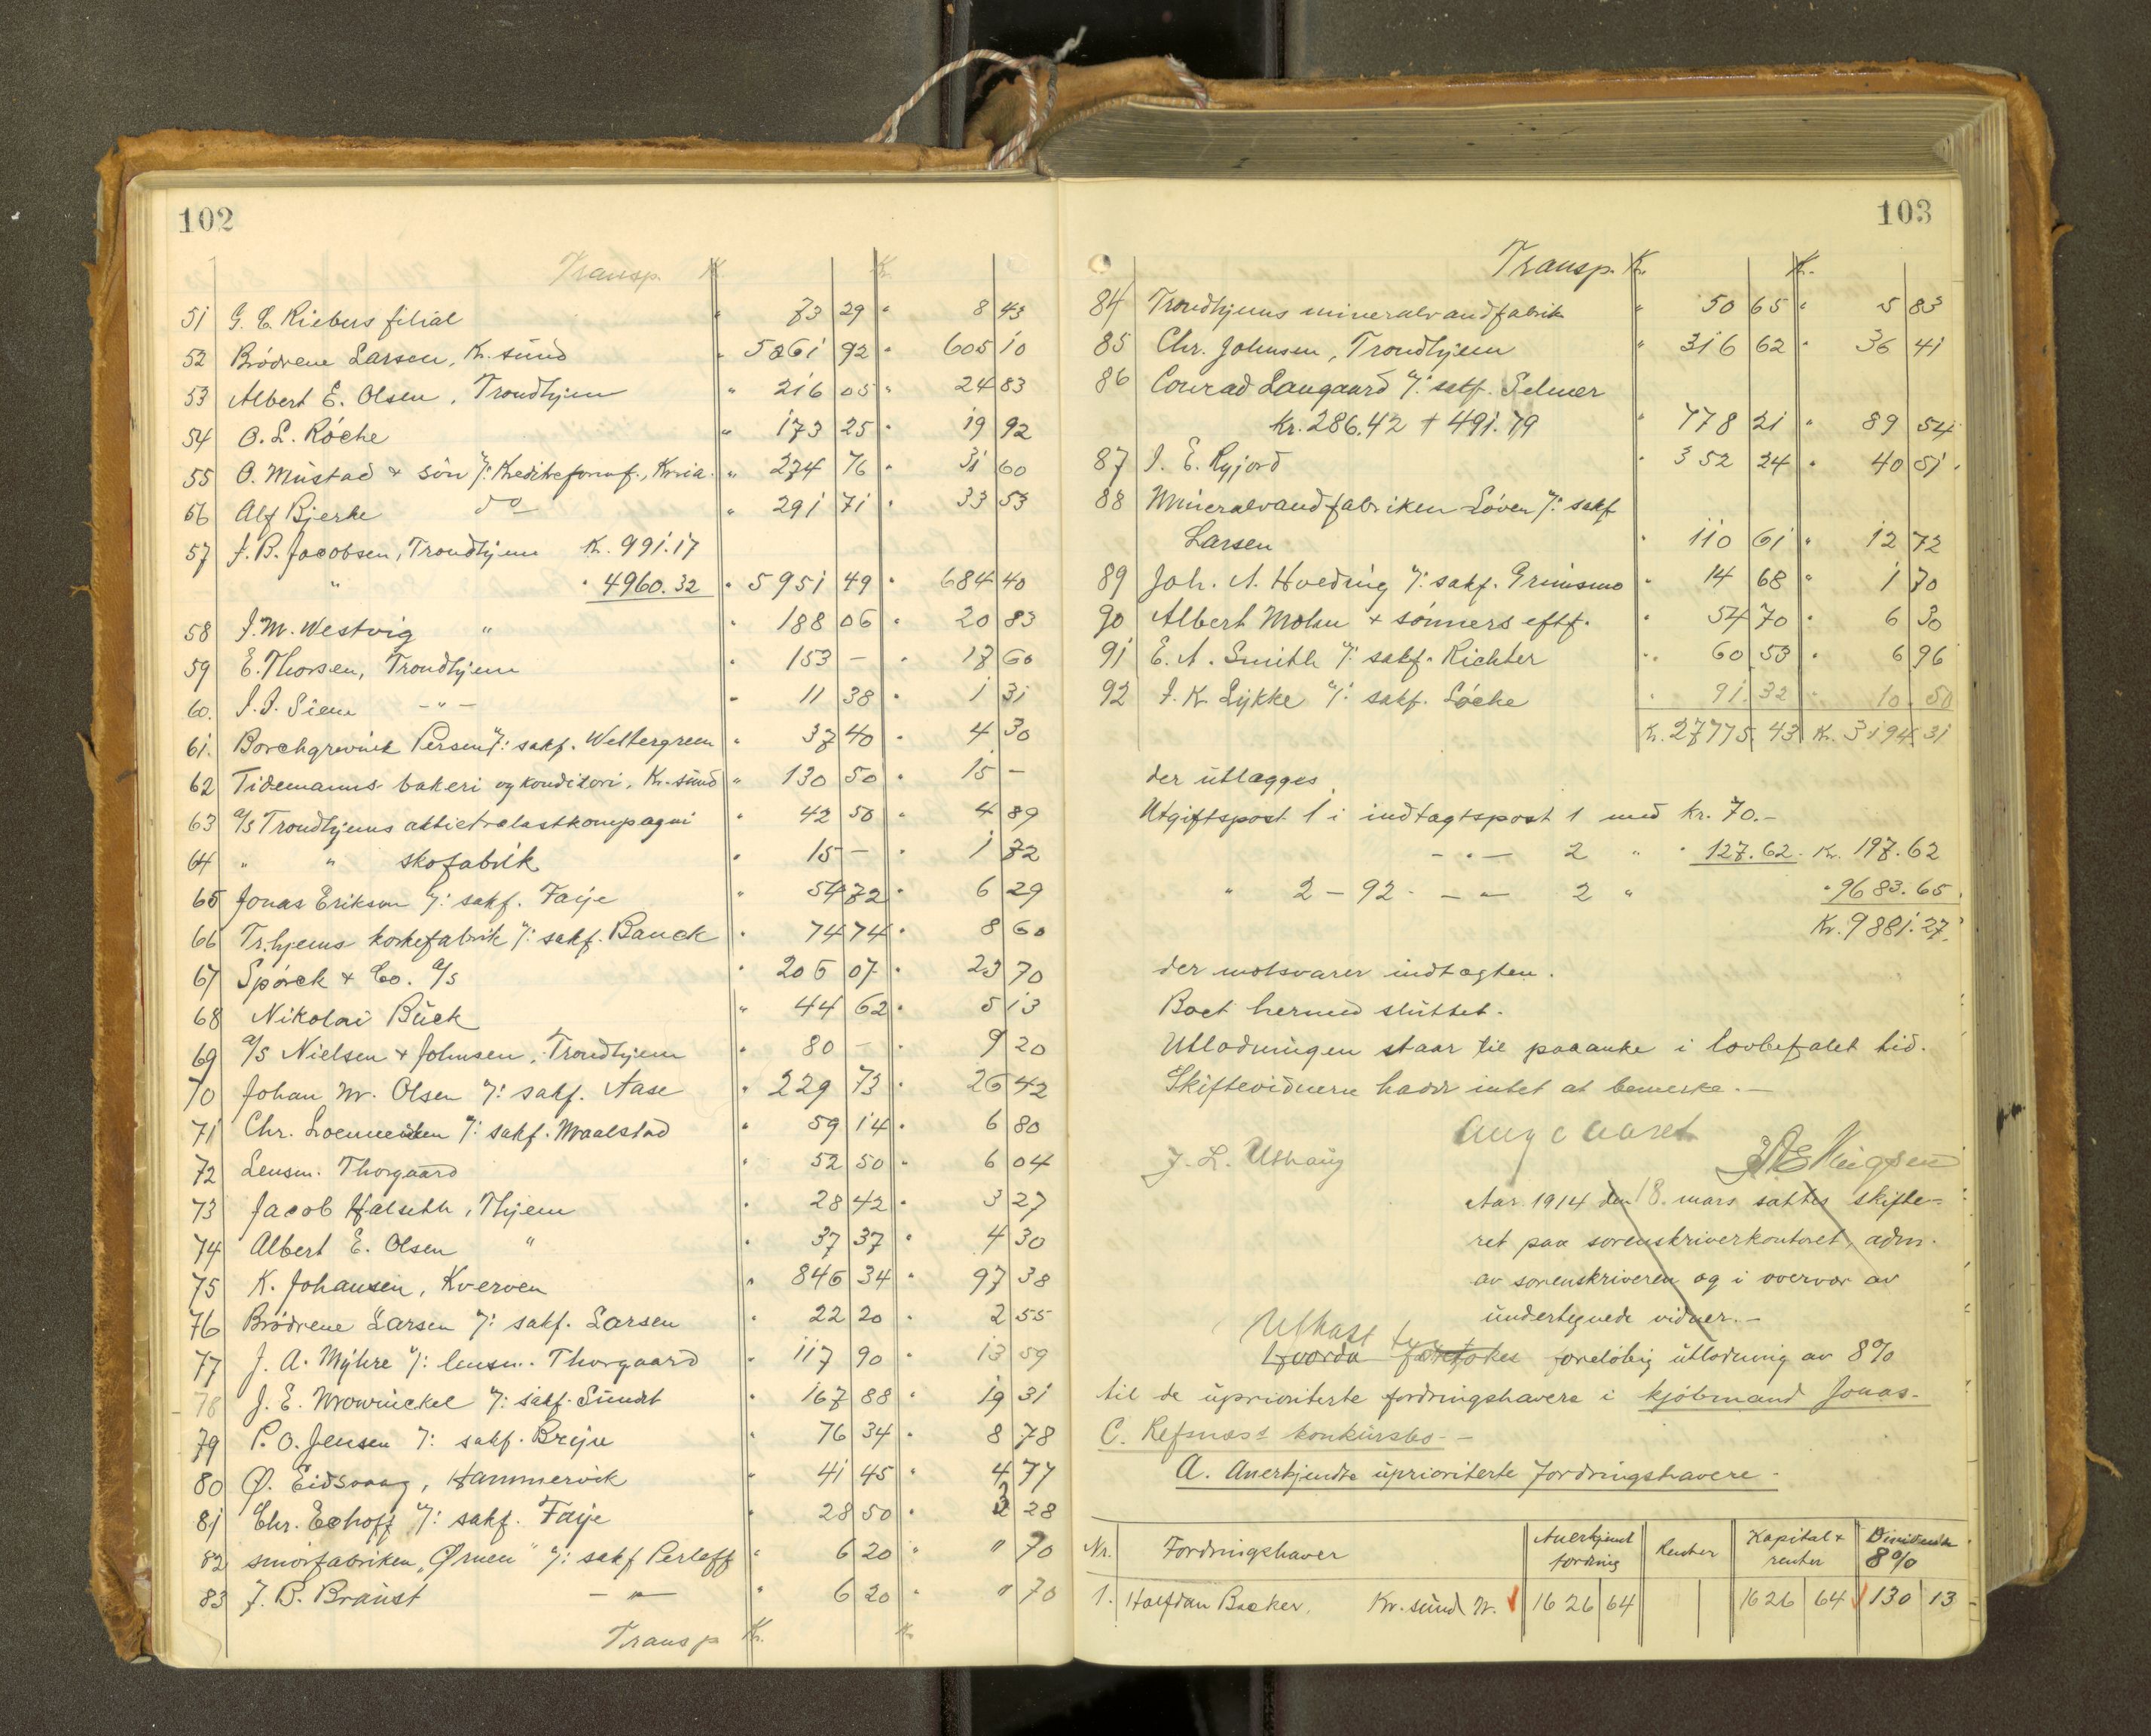 102
Transp. Kr. Kr.
51 G. C. Riebers filial " 73 29 " 8 43
52 Brödrene Larsen, Kr. sund " 5261 92 " 605 10
53 Albert E. Olsen, Trondhjem " 216 05 " 24 83
54 O. L. Röche " 173 25 " 19 92
55 O. Mustad & sön /: Kreditreform f., Kr.ia. " 274 76 " 31 60
56 Alf Bjerke do " 291 71 " 33 53
57 J. B. Jacobsen, Trondhjem Kr. 991.17
" " 4960.32 " 5951 49 " 684 40
58 J. M. Westvig " " 188 06 " 20 83
59 E. Thorsen, Trondhjem " 153 – " 17 60
60. J. J. Siem – " – " 11 38 " 1 31
61. Borchgrevink Persen /: sakf. Weltergreen " 37 40 " 4 30
62 Tidemanns bakeri og konditori, Kr. sund " 130 50 " 15 –
63 A/S Trondhjems aktietralastkompagni " 42 50 " 4 89
64 " " skofabrik " 15 – " 1 72
65 Jonas Erikson /: sakf. Faije " 54 72 " 6 29
66 Tr.hjems korkefabrik /: sakf. Bauck " 74 74 " 8 60
67 Spörck & Co. A/S " 206 07 " 23 70
68 Nikolai Buck " 44 62 " 5 13
69 A/S Nielsen & Johnsen, Trondhjem " 80 – " 9 20
70 Johan M. Olsen /: sakf. Aase " 229 73 " 26 42
71 Chr. /: sakf. Maalstad " 59 14 " 6 80
72 Lensm. Thorgaard " 52 50 " 6 04
73 Jacob Halseth, Thjem " 28 42 " 3 27
74 Albert E. Olsen " " 37 37 " 4 30
75 K. Johansen, Kverven " 846 34 " 97 38
76 Brödrene Larsen /: sakf. Larsen " 22 20 " 2 55
77 J. A. Myhre /: lensm. Thorgaard " 117 90 " 13 59
78 J. E. Mowinckel /: sakf. Sundt " 167 88 " 19 31
79 P. O. Jensen /: sakf. " 76 34 " 8 78
80 Ø. Eidsvaag, Hammervik " 41 45 " 4 77
81 Chr. Eckhoff /: sakf. Faije " 28 50 " 3 28
82 smörfabriken "Ørnen" /: sakf Perloff " 6 20 " " 70
83 J. B. Braust – " – " 6 20 " " 70
Transp Kr. Kr
103
Transp. Kr. Kr.
84 Trondhjems mineralvandfabrik " 50 65 " 5 83
85 Chr. Johnsen, Trondhjem " 316 62 " 36 41
86 Conrad Langaard /: sakf. Selmer
kr. 286.42 + 491.79 " 778 21 " 89 54
87 J. E. Ryjord " 352 24 " 40 51
88 Mineralvandfabriken Löven /: sakf
Larsen " 110 61 " 12 72
89 Joh. N. Hvedring /: sakf. Grinismo " 14 68 " 1 70
90 Albert Mohn & sönners eftf. " 54 70 " 6 30
91 E. A. Smith /: sakf. Richter " 60 53 " 6 96
92 J. K. Lykke /: sakf. Löcke " 91 32 " 10 50
Kr. 27775 43 Kr. 3194 31
der utlægges
Utgiftspost 1 i indtægtspost 1 med kr. 70.–
– " – 2 " " 127.62. Kr. 197.62
" 2 – 92 – " – 2 " " 9683.65
Kr. 9881.27.
der motsvarer indtægten.
Boet hermed sluttet.
Utlodningen staar til paaanke i lovbefalet tid.
Skiftevidnerne hadde intet at bemerke.–
Aug Caarel
J. L. Uthaug
Aar 1914 den 18. mars sattes skifte-
ret paa sorenskriverkontoret, adm.
av sorenskriveren og i overvær av
undertegnede vidner.–
Utkast
Hvorda foretokes foreløbig utlodning av 8%
til de uprioriterte fordringshavere i kjöbmand Jonas
C. Refsnæs's konkursbo.–
A. Anerkjendte uprioriterte fordringshavere.
Nr. Fordringshaver Anerkjent fordring Renter Kapital + renter Dividende 8%
1. Halfdan Backer, Kr. sund N. 1626 64 1626 64 130 13